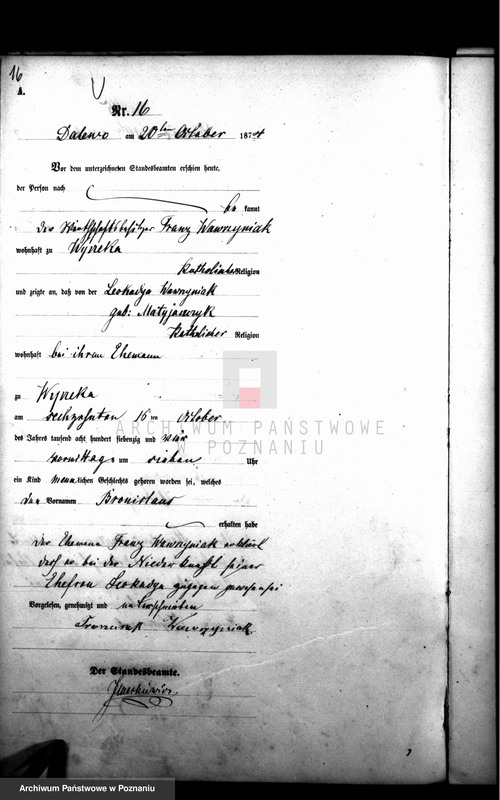 16
A.
Nr. 16
Dalewo am 20ten October 1874
Vor dem unterzeichneten Standesbeamten erschien heute,
der Person nach
bekannt
der Wirthschaftsbesitzer Franz Wawrzyniak
wohnhaft zu Wyrzeka
katholischer Religion
und zeigte an, daß von der Leokadya Wawrzyniak
geb: Matyjaszczyk
katholischer Religion
wohnhaft bei ihrem Ehemann
zu Wyrzeka
am sechzehnten 16 ten October
des Jahres tausend acht hundert siebenzig und vier
vormittags um sieben Uhr
ein Kind männlichen Geschlechts geboren worden sei, welches
den Vornamen Bronislaus
erhalten habe
Der Ehemann Franz Wawrzyniak erklärt
daß er bei der Niederkunft seiner
Ehefrau Leokadya zugegen gewesen sei
Vorgelesen, genehmigt und unterschrieben
Franciszek Wawrzyniak
Der Standesbeamte.
ARCHIWUM PAŃSTWOWE
W POZNANIU
Archiwum Państwowe w Poznaniu